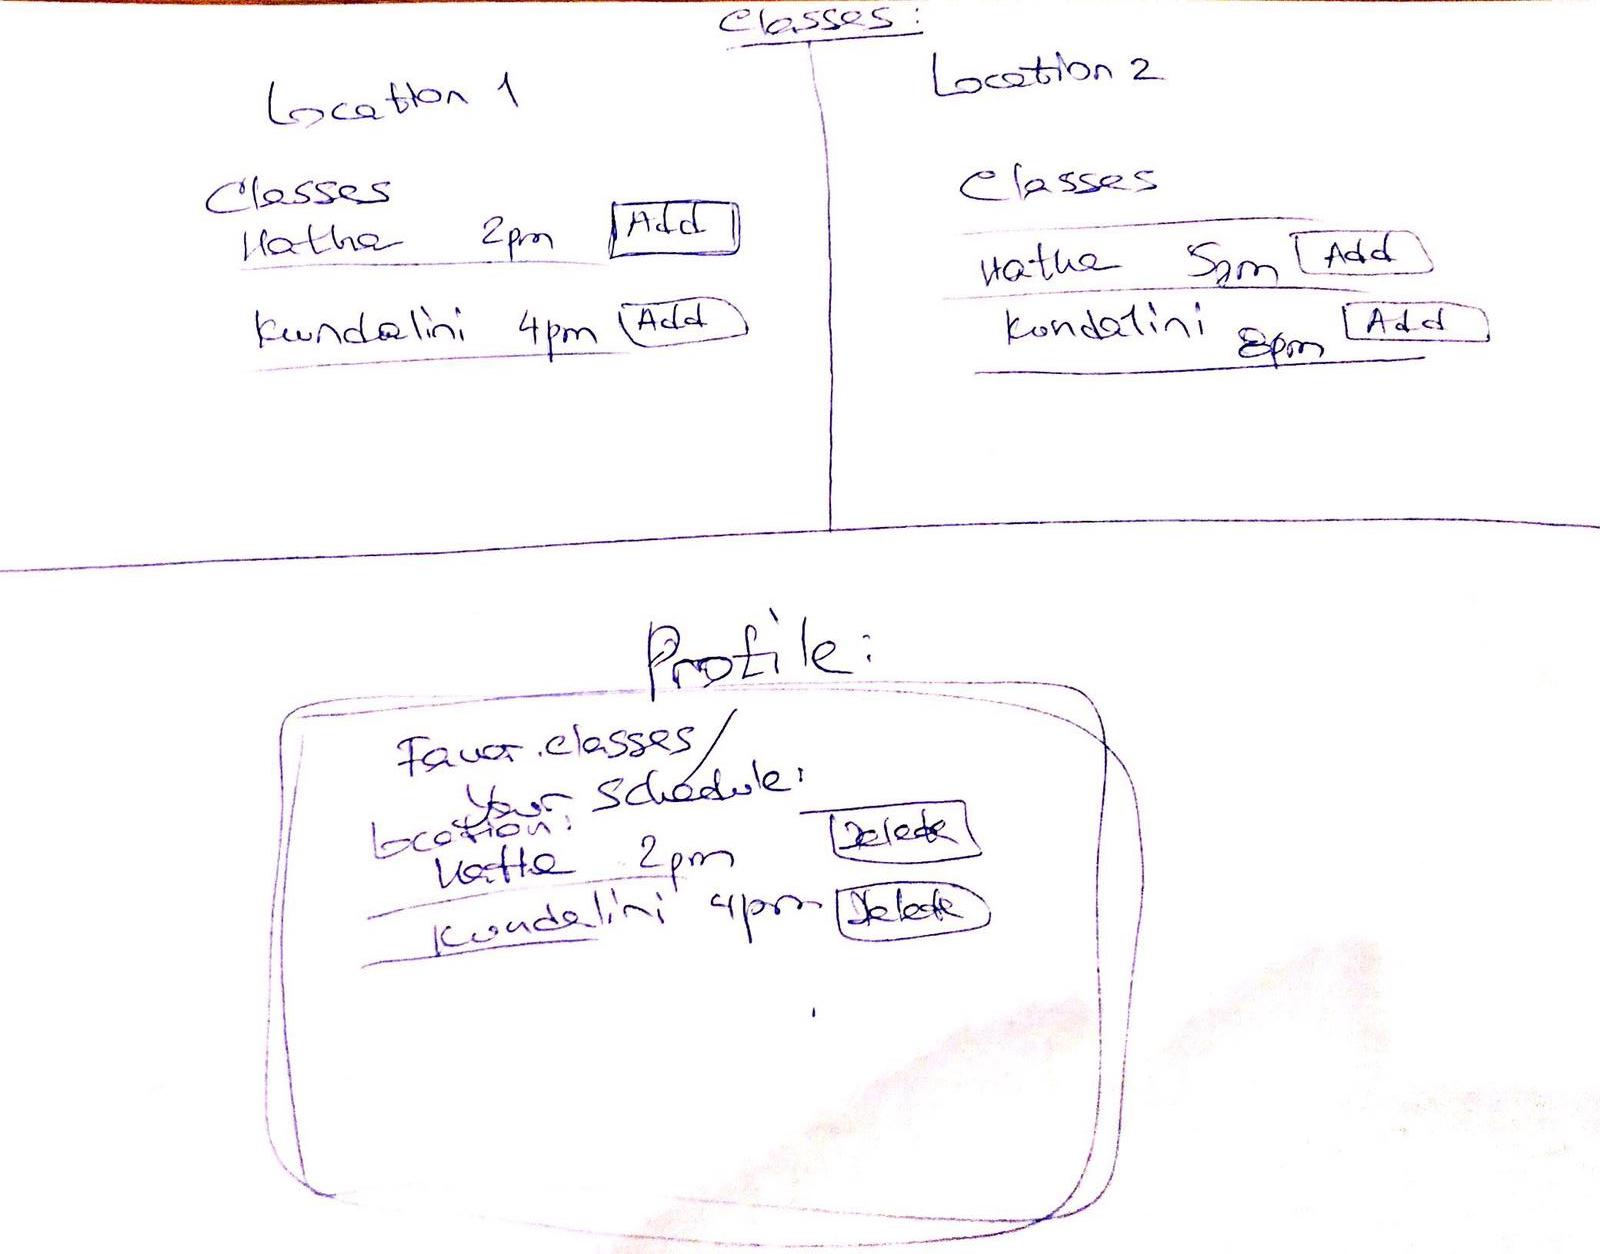 Classes:
Location 1
Classes
Hatha 2pm Add
Kundalini 4pm Add
Location 2
Classes
Hatha 5pm Add
Kundalini 8pm Add
Profile:
Favor. classes/
Your Schedule:
Location:
Hatha 2pm Delete
Kundalini 4pm Delete